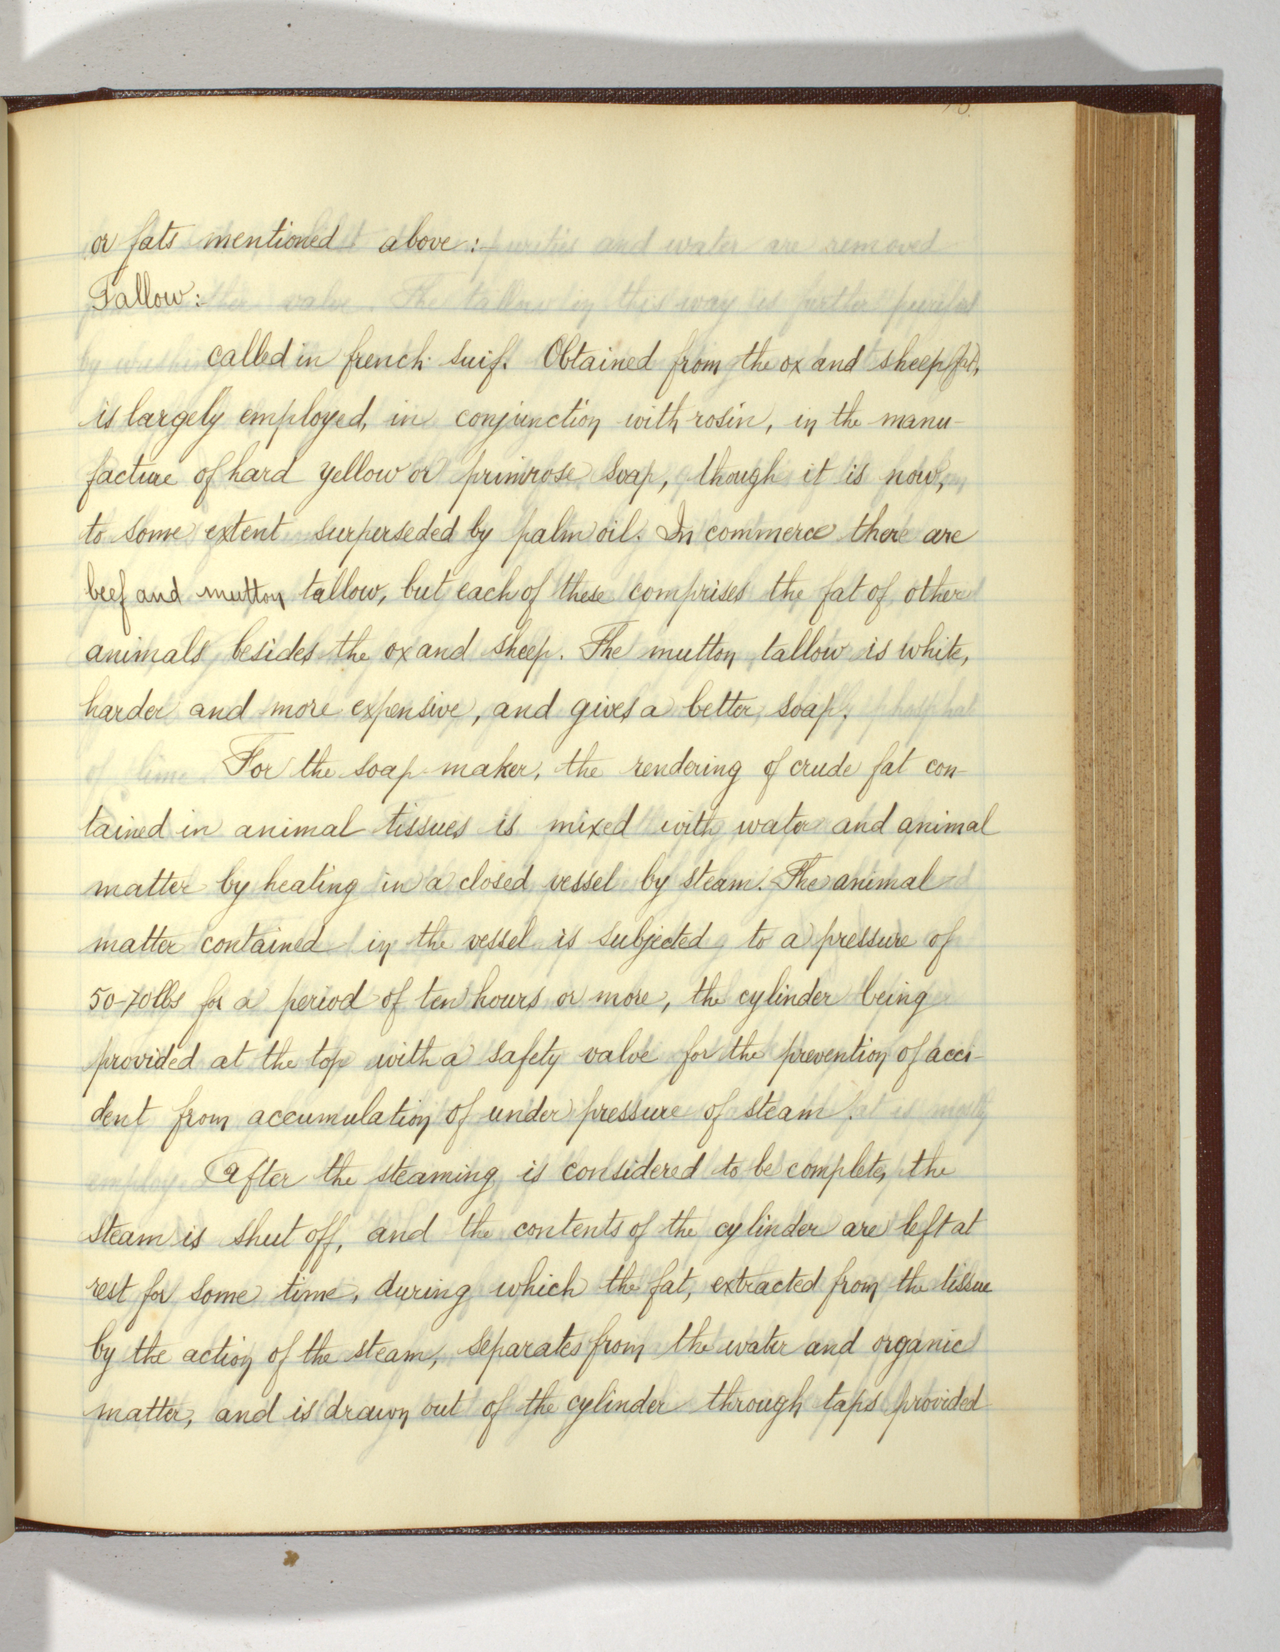 or fats mentioned above :-
Tallow:
called in french suif. Obtained from the ox and sheep fat,
is largely employed, in conjunction with rosin, in the manu-
facture of hard yellow or primrose soap, though it is now,
to some extent surperseded by palm oil. In commerce there are
beef and mutton tallow, but each of these comprises the fat of other
animals besides the ox and sheep. The mutton tallow is white,
harder and more expensive, and gives a better soap.
For the soap maker, the rendering of crude fat con-
tained in animal tissues is mixed with water and animal
matter by heating in a closed vessel by steam. The animal
matter contained in the vessel is subjected to a pressure of
50-70 lbs for a period of ten hours or more, the cylinder being
provided at the top with a safety valve for the prevention of acci-
dent from accumulation of under pressure of steam.
After the steaming is considered to be complete, the
steam is shut off, and the contents of the cylinder are left at
rest for some time, during which the fat, extracted from the tissue
by the action of the steam, separates from the water and organic
matter, and is drawn out of the cylinder through taps provided